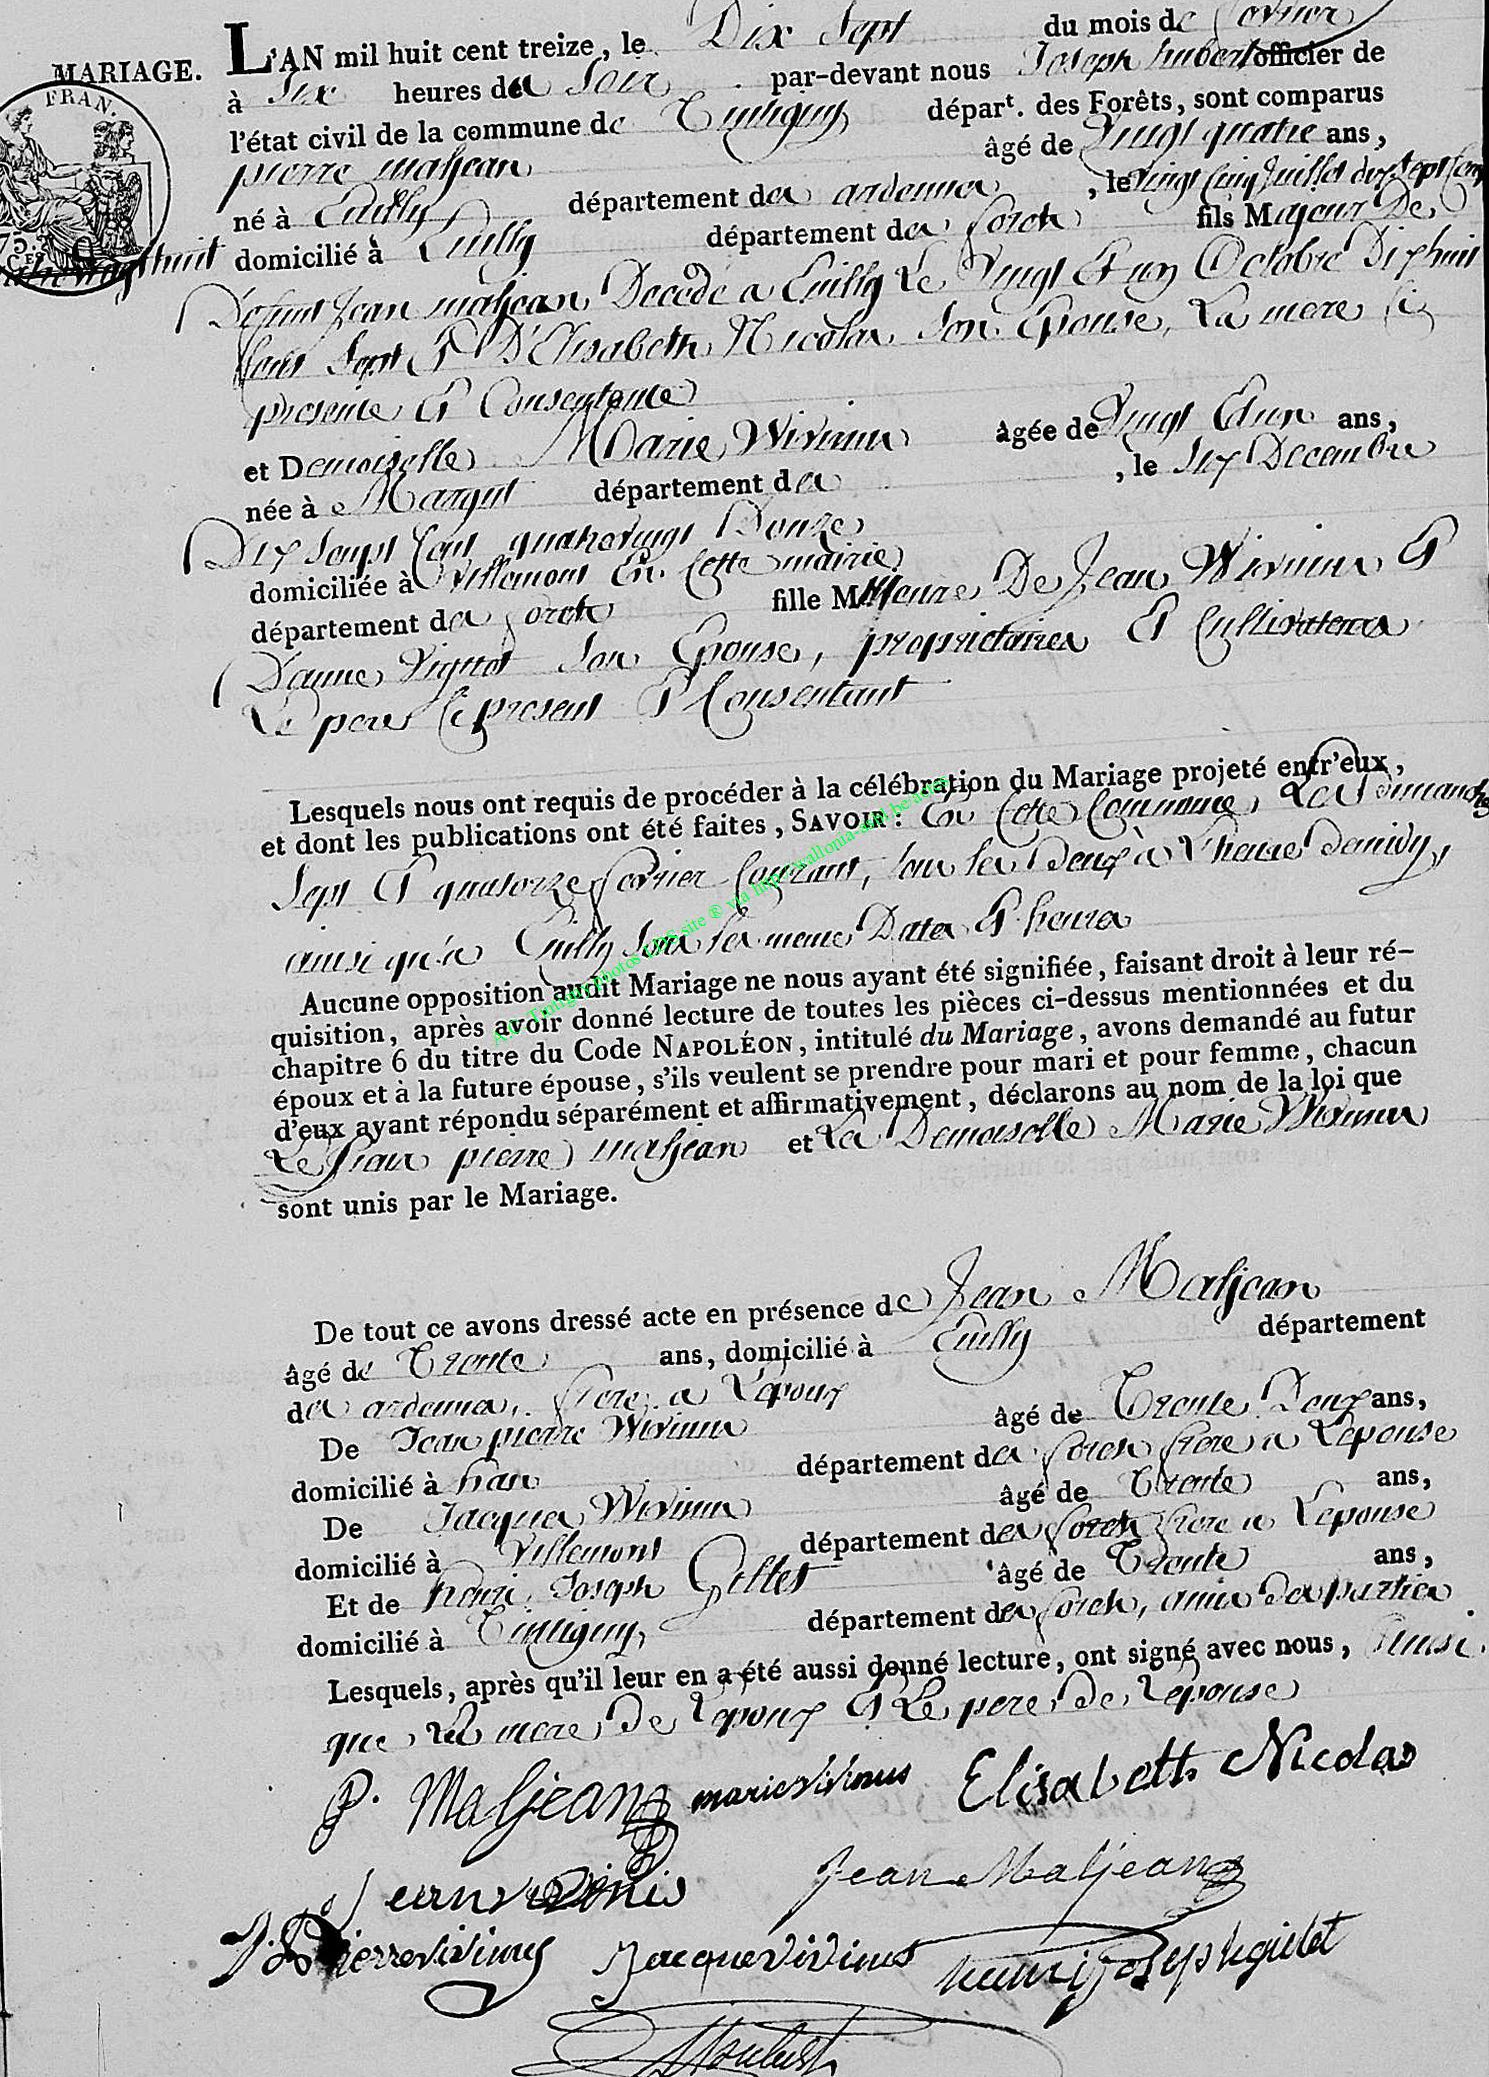 MARIAGE.
FRAN.
75 CES
L'AN mil huit cent treize, le Dix Sept du mois de fevrier
à Six heures des Soir par-devant nous Joseph hubert officier de
l'état civil de la commune de Tintigny départ. des Forêts, sont comparus
pierre maljean âgé de Vingt quatre ans,
né à Euilly département des ardennes, le Vingt Cinq Juillet dix Sept Cent
quatrevingt huit
domicilié à Euilly département des forets fils Majeur De
Defunt Jean maljean Decede a Euilly Le Vingt Et un Octobre Dix huit
Cent Sept Et D'Elisabeth Nicolas Son Epouse, La mere Ci
presente Et Consentante
et Demoiselle Marie Wivinus âgée de Vingt Etun ans,
née à Margut département des , le Six Decembre
Dix Sept Cent quatrevingt Douze
domiciliée à Villemont En Cette mairie
département des forets fille Mineure De Jean Wivinus Et
D'anne Vignot Son Epouse, proprietaires Et Cultivateurs
Le pere Ci present Et Consentant
Lesquels nous ont requis de procéder à la célébration du Mariage projeté entr'eux,
et dont les publications ont été faites, SAVOIR: En Cette Commune, Les Dimanche
Sept Et quatorze fevrier Courant, tous les Deux à L'heure De midy,
ainsi qu'a Euilly Sous les meme Dates Et heures
Aucune opposition audit Mariage ne nous ayant été signifiée, faisant droit à leur ré-
quisition, après avoir donné lecture de toutes les pièces ci-dessus mentionnées et du
chapitre 6 du titre du Code NAPOLÉON, intitulé du Mariage, avons demandé au futur
époux et à la future épouse, s'ils veulent se prendre pour mari et pour femme, chacun
d'eux ayant répondu séparément et affirmativement, déclarons au nom de la loi que
Le Sieur pierre maljean et La Demoiselle Marie Wivinus
sont unis par le Mariage.
De tout ce avons dressé acte en présence de Jean Maljean
âgé de Trente ans, domicilié à Euilly département
des ardennes, frere a L'epoux
De Jean pierre Wivinus âgé de Trente Deux ans,
domicilié à han département des forets frere a Lepouse
De Jacques Wivinus âgé de Trente ans,
domicilié à Villemont département des forets frere a Lepouse
Et de henri Joseph Gillet âgé de Trente ans,
domicilié à Tintigny département des forets, amis des parties
Lesquels, après qu'il leur en a été aussi donné lecture, ont signé avec nous, ainsi
que La mere De L'epoux Et Le pere De Lepouse
P. Maljean marie vivinus Elisabeth Nicolas
Jean vivinis Jean Maljean
J. Pierre vivinus Jacque vivinus henri joseph gillet
JHubert
A.C. Tintigny photos LDS site ® via http://wallonia-asbl.be/actes